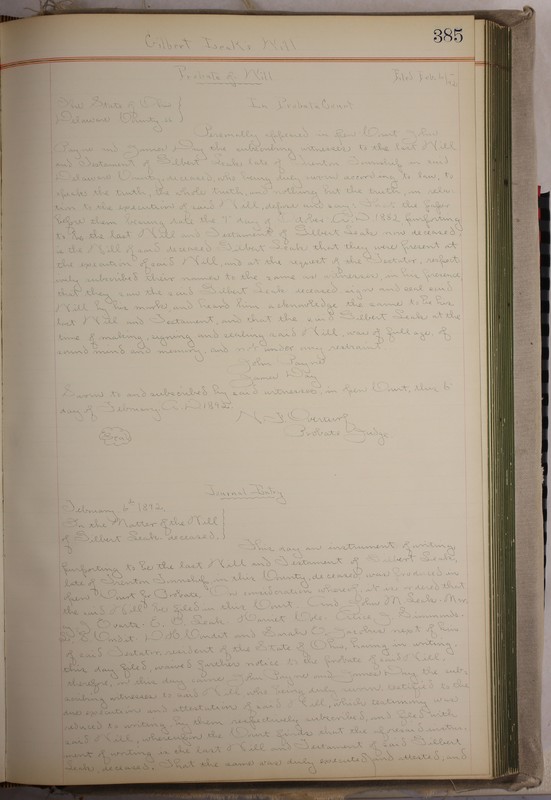 385
Gilbert Leak's Will
Probate of Will
Filed Feb 6
The State of Ohio
Delaware County ss
In Probate Court
Personally appeared in open Court John
Payne and James Day the subscribing witnesses to the last Will
and Testament of Gilbert Leak late of Trenton Township in said
Delaware County, deceased, who being duly sworn according to law, to
speak the truth, the whole truth, and nothing but the truth, in rela-
tion to the execution of said Will, depose and say: That the paper
before them bearing date the 7 day of 1862 purporting
to be the last Will and Testament of Gilbert Leak now deceased
is the Will of said deceased Gilbert Leak that they were present at
the execution of said Will, and at the request of the Testator, respect-
ively subscribed their names to the same as witnesses, in his presence
that they saw the said Gilbert Leak deceased sign and seal said
Will by his mark, and heard him acknowledge the same to be his
last Will and Testament, and that the said Gilbert Leak at the
time of making, signing and sealing said Will, was of full age, of
sound mind and memory, and not under any restraint
John Payne
James Day
Sworn to and subscribed by said witnesses, in open Court, this 6
day of February A.D. 1892
Probate Judge
Seal
Journal Entry
February 6th 1892
In the Matter of the Will
of
Gilbert Leak, deceased.
This day an instrument of writing
purporting to be the last Will and Testament of Gilbert Leak,
late of Trenton Township, in this County, deceased was produced in
open Court for Probate. On consideration whereof, it is ordered that
the said Will be filed in this Court. And John N. Leak, Mar
J. Overts. E. C. Leak Alice J. Simmonds.
and Sarah O. Jacobus next of kin
of said Testator, resident of the State of Ohio, having in writing
this day filed, waived further notice to the probate of said Will.
therefore, on this day came John Payne and James Day the sub-
scribing witnesses to said Will, who being duly sworn testified to the
due execution and attestation of said Will, which testimony was
reduced to writing by them respectively subscribed, and filed with
said Will, whereupon the Court finds that the aforesaid instru-
ment of writing is the last Will and Testament of said Gilbert
Leak, deceased. That the same was duly executed and attested, and